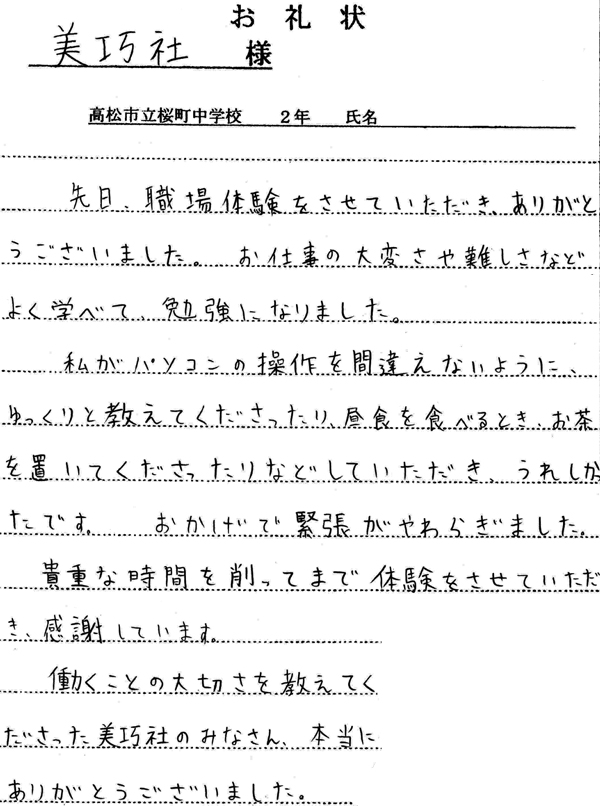 お礼状
美巧社 様
高松市立桜町中学校 2年 氏名
先日、職場体験をさせていただき、ありがと
うございました。 お仕事の大変さや難しさなど
よく学べて、勉強になりました。
私がパソコンの操作を間違えないように、
ゆっくりと教えてくださったり、昼食を食べるとき、お茶
を置いてくださったりなどしていただき、うれしか
たです。 おかげで緊張がやわらぎました。
貴重な時間を削ってまで体験をさせていただ
き、感謝しています。
働くことの大切さを教えてく
ださった美巧社のみなさん、本当に
ありがとうございました。